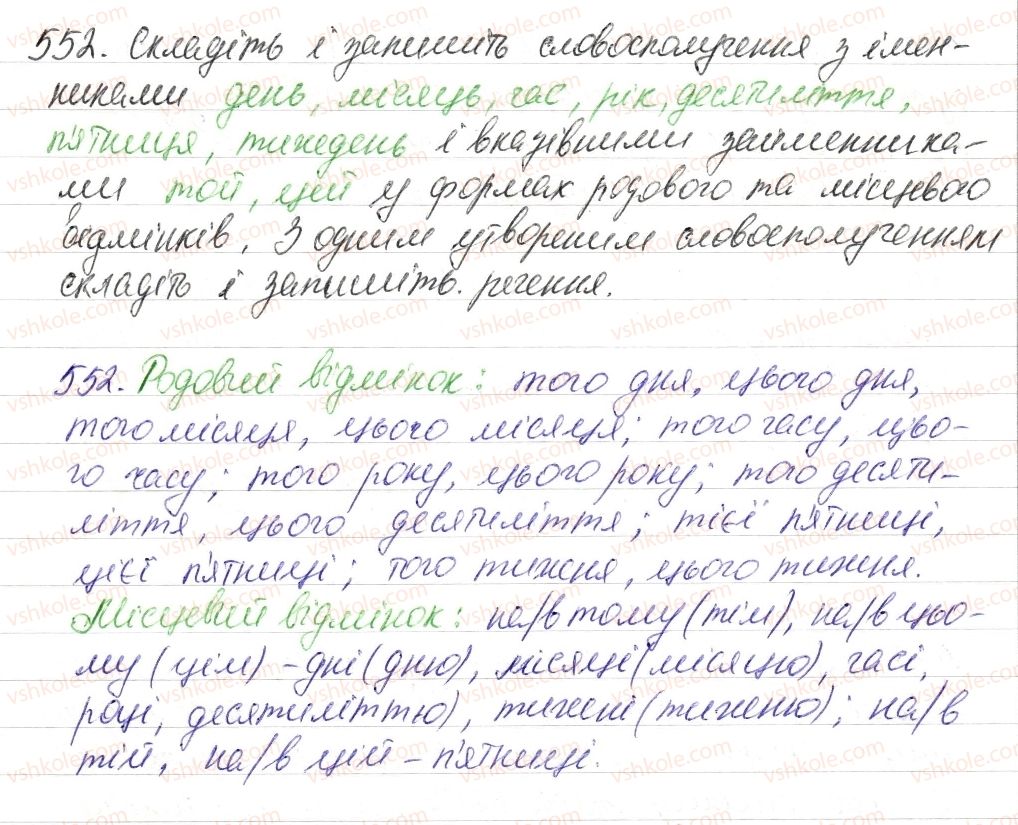 552. Складіть і запишіть словосполучення з імен-
никами день, місяць, час, рік, десятиліття,
п'ятниця, тиждень і вказівними займенника-
ми той, цей у формах родового та місцевого
відмінків. З одним утвореним словосполученням
складіть і запишіть речення.
552. Родовий відмінок: того дня, цього дня,
того місяця, цього місяця; того часу, цьо-
го часу; того року, цього року; того десяти-
ліття, цього десятиліття; тієї п'ятниці,
цієї п'ятниці; того тижня, цього тижня.
Місцевий відмінок: на/в тому (тім), на/в цьо-
му (цім) - дні (дню), місяці (місяцю), часі,
році, десятиліттю), тижні (тижню); на/в
тій, на/в цій - п'ятниці.